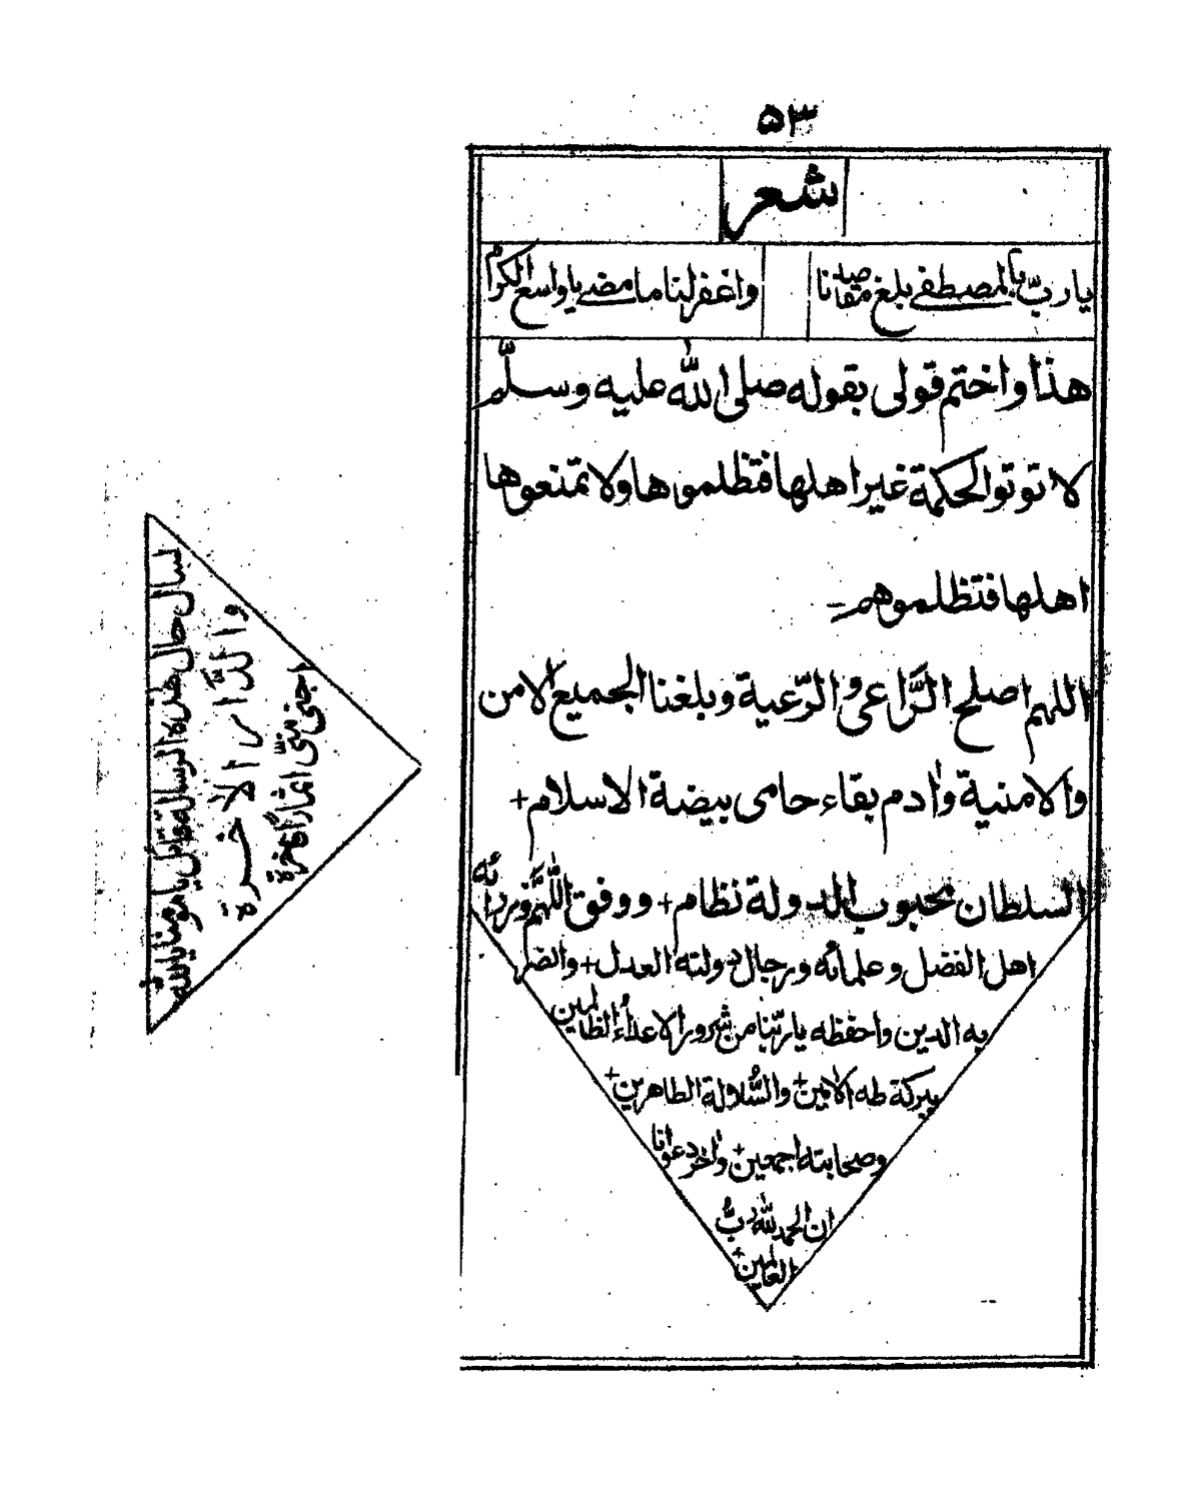 ۵۳
شعر
يا رب بالمصطفى بلغ مقاصدنا واغفر لنا ما مضى يا واسع الكرم
هذا واختم قولى بقوله صلى الله عليه وسلّم
لا توتوا الحكمة غير اهلها فتظلموها ولا تمنعوها
اهلها فتظلموهم_
اللهم اصلح الرَّاعى والرّعية وبلغنا الجميع الامن
والامنية وادم بقاء حامى بيضة الاسلام+
السلطان محبوب الدولة نظام+ ووفق اللّٰهمَّ وزرائه
اهل الفضل وعلمائه ورجال دولته العدل+ وانصر
به الدين واحفظه يا ربّنا من شرور الاعداء الظالمين
ببركة طه الامين+ والسُّلالة الطاهرين+
وصحابته اجمعين+ واخر دعوانا
ان الحمد لله ربّ
العالمين+
لسان حال هذه الرسالة قائل يا مومنا بالله
والدّار الاخرة
اجنى اثمار